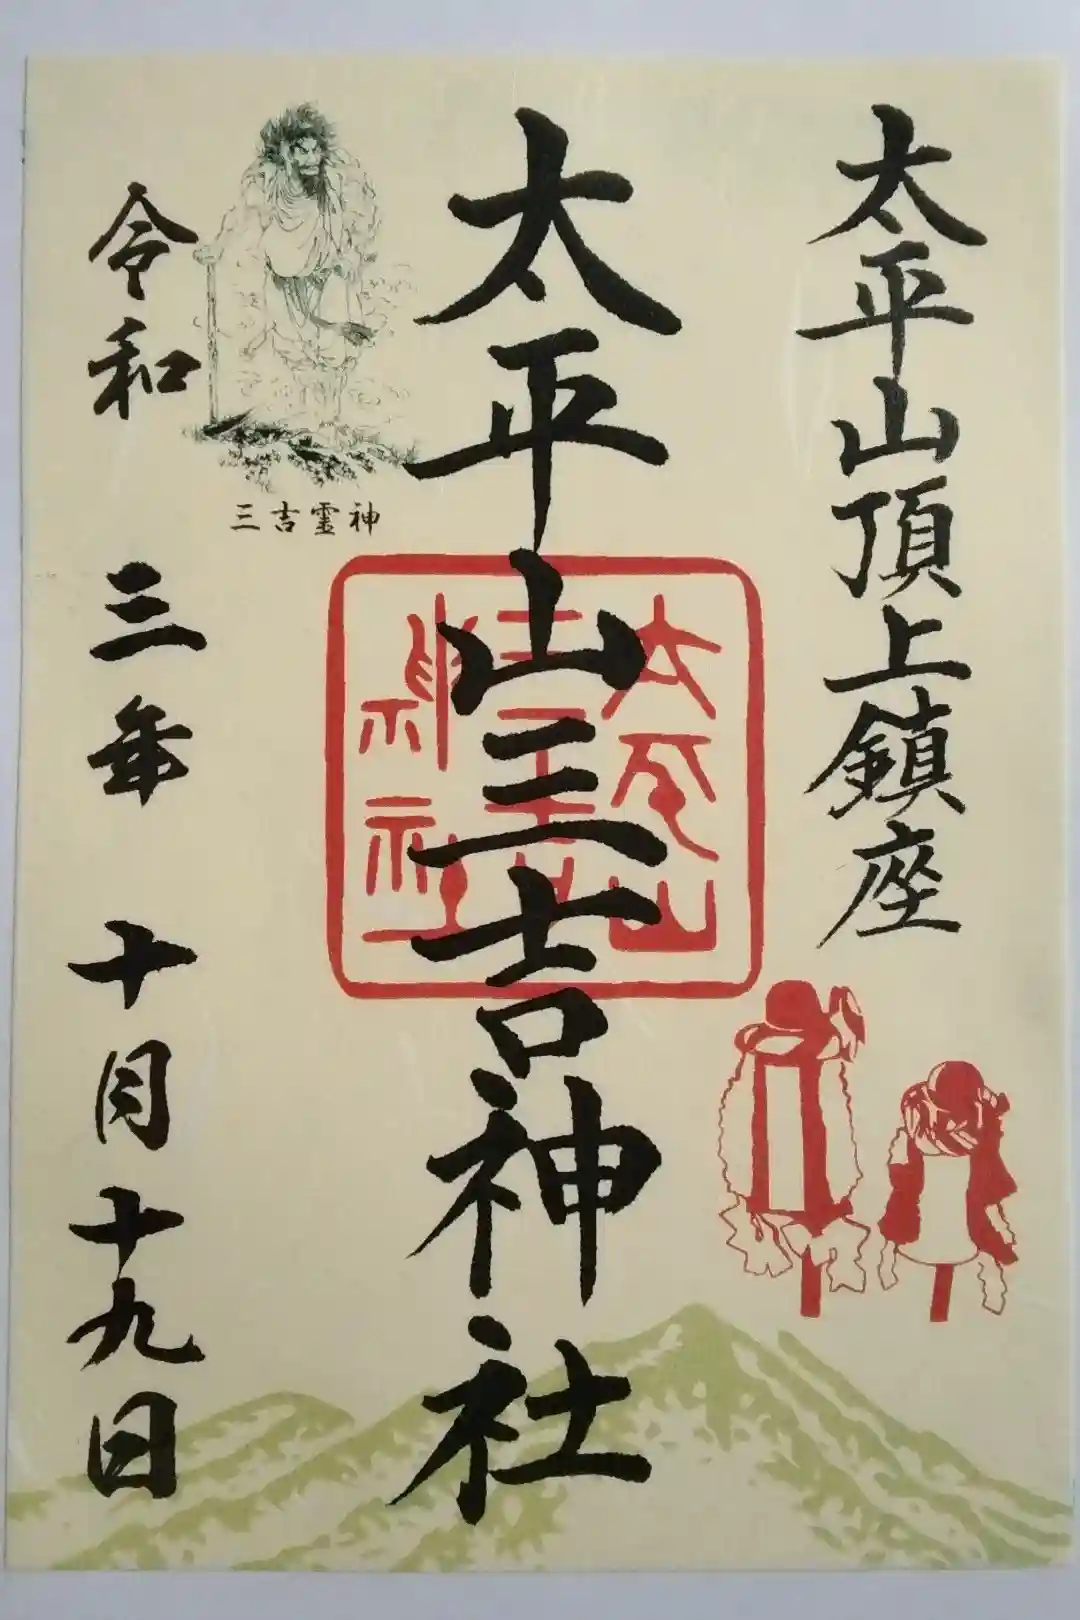 太平山頂上鎮座
太平山三吉神社
太平山
三吉
神社
三吉霊神
令和三年十月十九日